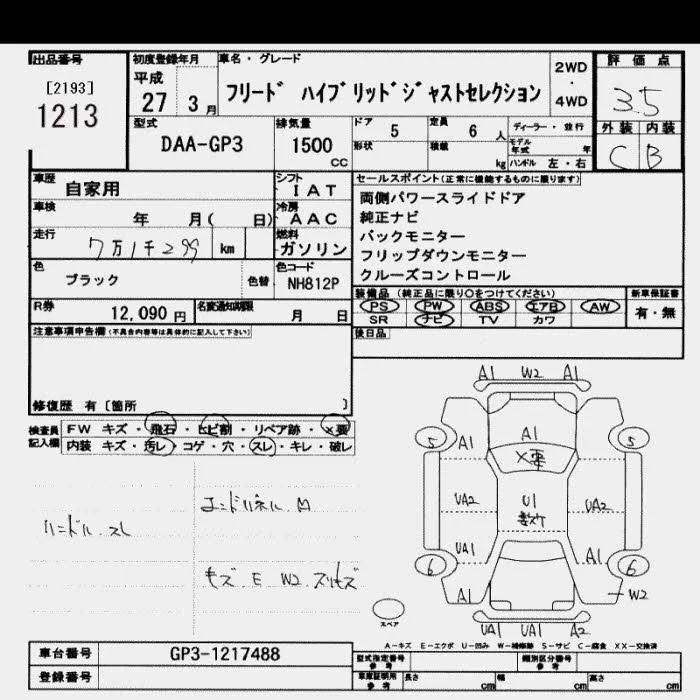 出品番号 初度登録年月 車名・グレード 評価点
[2193] 平成 2WD
1213 27 3月 フリード ハイブリッドジャストセレクション ・ 3.5
4WD
型式 排気量 ドア 5 定員 6人 ディーラー・並行 外装 内装
DAA-GP3 1500 CC 形状 積載 kg モデル年式 年 C B
ハンドル 左・右
車歴 自家用 シフト IAT セールスポイント(正常に機能するものに限ります)
車検 年 月( 日) 冷房 AAC 両側パワースライドドア
走行 7万1千299 km 燃料 ガソリン 純正ナビ
バックモニター
フリップダウンモニター
クルーズコントロール
色 ブラック 色替 色コード NH812P
R券 12,090円 名変通知期限 月 日
装備品(純正品に限り○をつけてください) 新車保証書
PS PW ABS エアB AW 有・無
SR ナビ TV カワ
注意事項申告欄(不具合内容等は具体的に記入して下さい) 後日品
修復歴 有[箇所 ]
検査員記入欄 FW キズ・飛石・ヒビ割・リペア跡・×要
内装 キズ・汚レ・コゲ・穴・スレ・キレ・破レ
ハンドル スレ
キズ E W2
A1 W2 A1
5 A1 A1 5
×要
UA2 U1 UA2
UA1 A1
6 A1 6
W2
UA1 UA1 A2
スペア
A-キズ E-エクボ U-凹み W-補修跡 S-サビ C-腐食 XX-交換済
車台番号 GP3-1217488 型式指定番号 参考 類別区分番号 参考
登録番号 車庫証明用 参考 長さ cm 幅 cm 高さ cm